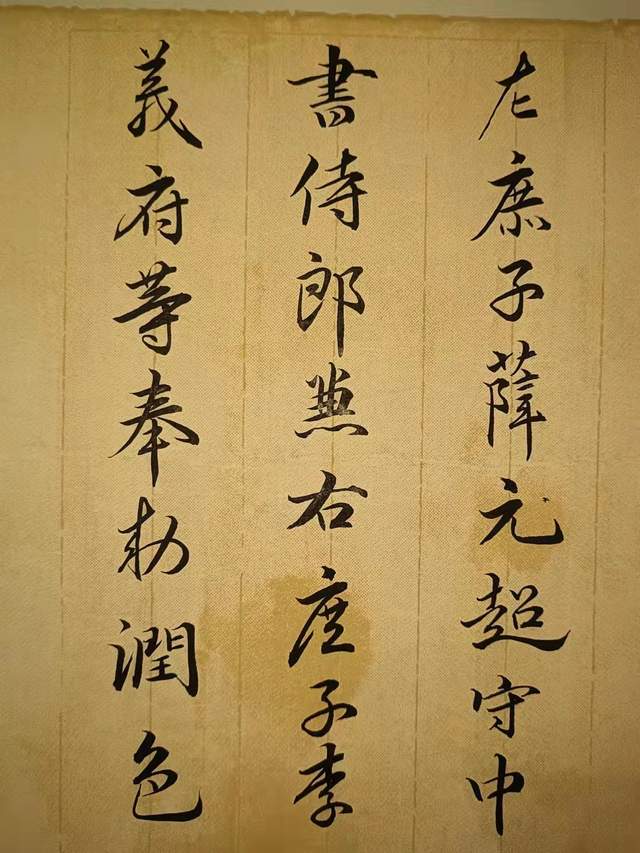 左庶子薛元超守中
書侍郎兼右庶子李
義府等奉勅潤色